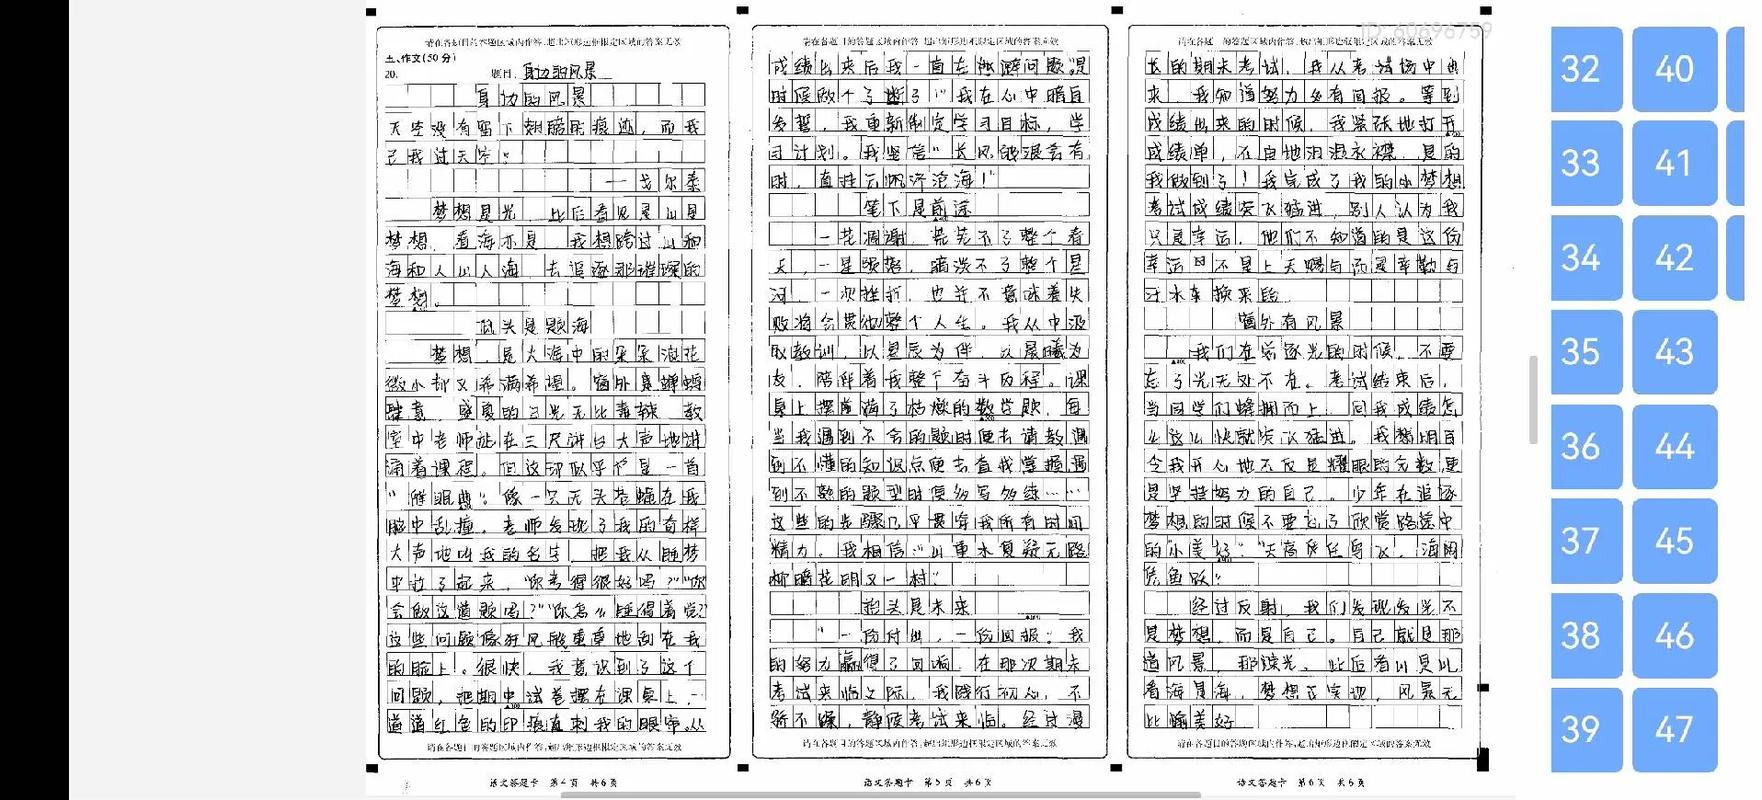 ID 60696759
请在各题目的答题区域内作答,超出矩形边框限定区域的答案无效
五、作文(50分)
20. 题目:身边的风景
身边的风景
天空没有留下翅膀的痕迹,而我
已飞过天空。"
梦想是光,此后看见是山是
梦想,看海亦是,我想跨过山和
海和人山人海,去追逐那璀璨的
梦想。
低头是题海
梦想,是大海中的朵朵浪花
微小却又希满希望。窗外夏蝉
肆意,盛夏的日光无比毒辣,教
室中老师站在三尺讲台大声地讲
诵着课程。但这却似乎是一首
"催眠曲",像一只无头苍蝇在我
脑中乱撞。老师发现了我的奇样
大声地叫我的名字,把我从睡梦
中拉了起来。"你考得很好吗?""你
会做这道题吗?""你怎么睡得着觉?"
这些问题像狂风般重重地刮在我
的脸上。很快,我意识到了这个
问题,把期中试卷摆在课桌上,一
道道红色的印痕直刺我的眼帘。从
请在各题目的答题区域内作答,超出矩形边框限定区域的答案无效
语文答题卡 第4页 共6页
请在各题目的答题区域内作答,超出矩形边框限定区域的答案无效
成绩出来后我一直在逃避问题,是
时候做个了断了!"我在心中暗自
发誓,我重新制定学习目标,学
习计划。我坚信"长风破浪会有
时,直挂云帆济沧海!"
笔下是前途
一花凋谢,荒芜不了整个春
天,一星陨落,暗淡不了整个星
河,一次挫折,也并不意味着失
败将会贯彻整个人生。我从中汲
取教训,以星辰为伴,以晨曦为
友,陪伴着我整个奋斗历程。课
桌上摆满了枯燥的数学题,每
当我遇到不会的题时便去请教遇
到不懂的知识点便去查找掌握遇
到不熟的题型时便多写多练……
这些的步骤几乎最穿我所有时间
精力。我相信:"山重水复疑无路
柳暗花明又一村"
抬头是未来
"一份付出,一份回报",我
的努力赢得了回响,在那次期末
考试来临之际,我践行初心,不
骄不躁,静候考试来临。经过漫
请在各题目的答题区域内作答,超出矩形边框限定区域的答案无效
语文答题卡 第5页 共6页
请在各题目的答题区域内作答,超出矩形边框限定区域的答案无效
长的期末考试,我从考试场中出
来,我知道努力必有回报。等到
成绩出来的时候,我紧张地打开
成绩单,不自地泪湿衣襟,是的
我做到了!我完成了我的小梦想
考试成绩突飞猛进,别人认为我
只是幸运,他们不知道的是这份
幸运日不是上天赐与而是辛勤与
汗水车换来的
窗外有风景
我们在穷逐光的时候,不要
忘了光无处不在。考试结束后,
当同学们蜂拥而上,问我成绩怎
么这么快就突飞猛进。我想明白
令我开心地不仅是耀眼的分数更
是坚持努力的自己。少年在追逐
梦想的时候不要忘了欣赏路途中
的小美好:"天高任鸟飞,海阔
凭鱼跃"
经过反射,我们发现发光不
是梦想,而是自己。自己就是那
道风景,那缕光。此后看山是山
看海是海,梦想正实现,风景无
比瑜美好
请在各题目的答题区域内作答,超出矩形边框限定区域的答案无效
语文答题卡 第6页 共6页
32 40
33 41
34 42
35 43
36 44
37 45
38 46
39 47